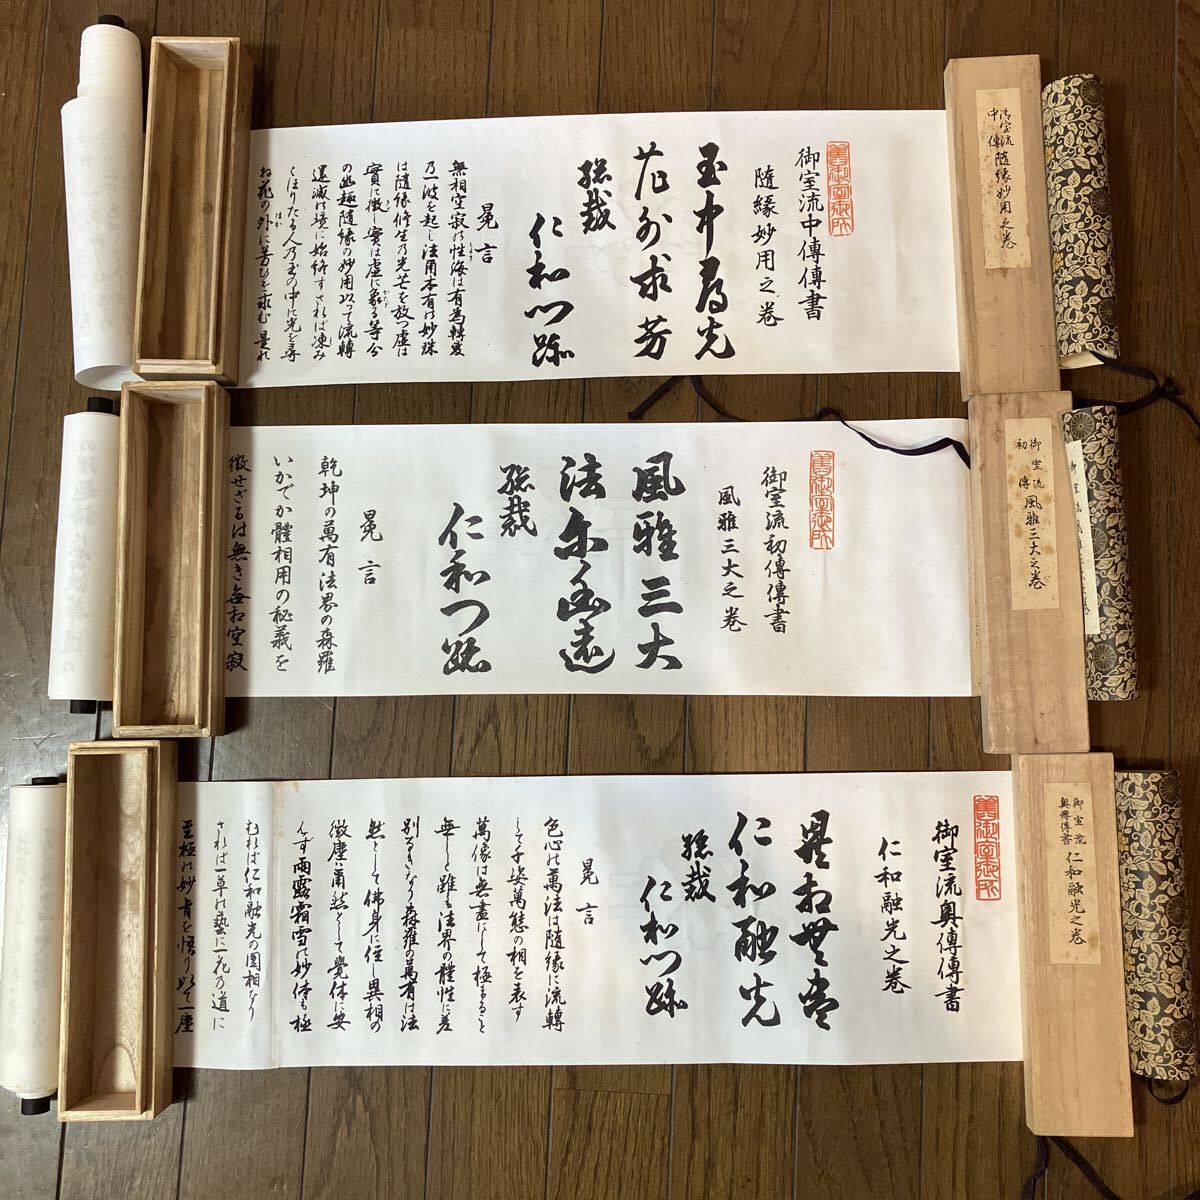 御室流
中傳 隨縁妙用之巻
舊御室御所
御室流中傳傳書
隨縁妙用之巻
玉中尋光
花外求芳
総裁
仁和門跡
晃言
無相空寂の性海は有為轉変
乃一波を起し法爾本有の妙珠
は隨縁修生乃光芒を放つ虚は
實に徴し實は虚に彰る等分
の幽趣隨縁の妙用以て流轉
還滅の境に始終すされば凍み
くほりたる人乃玉の中に光を尋
ね花の外に芳ひを求む是れ
御室流
初傳 風雅三大之巻
舊御室御所
御室流初傳傳書
風雅三大之巻
風雅三大
法尓幽遠
総裁
仁和門跡
晃言
乾坤の萬有法界の森羅
いかでか體相用の秘義を
徴せざるは無き無相空寂
御室流
奥傳傳書 仁和融光之巻
舊御室御所
御室流奥傳傳書
仁和融光之巻
異相無盡
仁和融光
総裁
仁和門跡
晃言
色心の萬法は隨縁に流轉
して千姿萬態の相を表す
萬像は無盡にして極まること
無しと雖も法界の體性に差
別るきなり森羅の萬有は法
然として佛身に住し異相の
微塵は爾然として覺体に安
んず雨露霜雪の妙体も極
むれば仁和融光の圓相なり
されば一草の藝に一花乃道に
至極の妙旨を悟り以て一塵